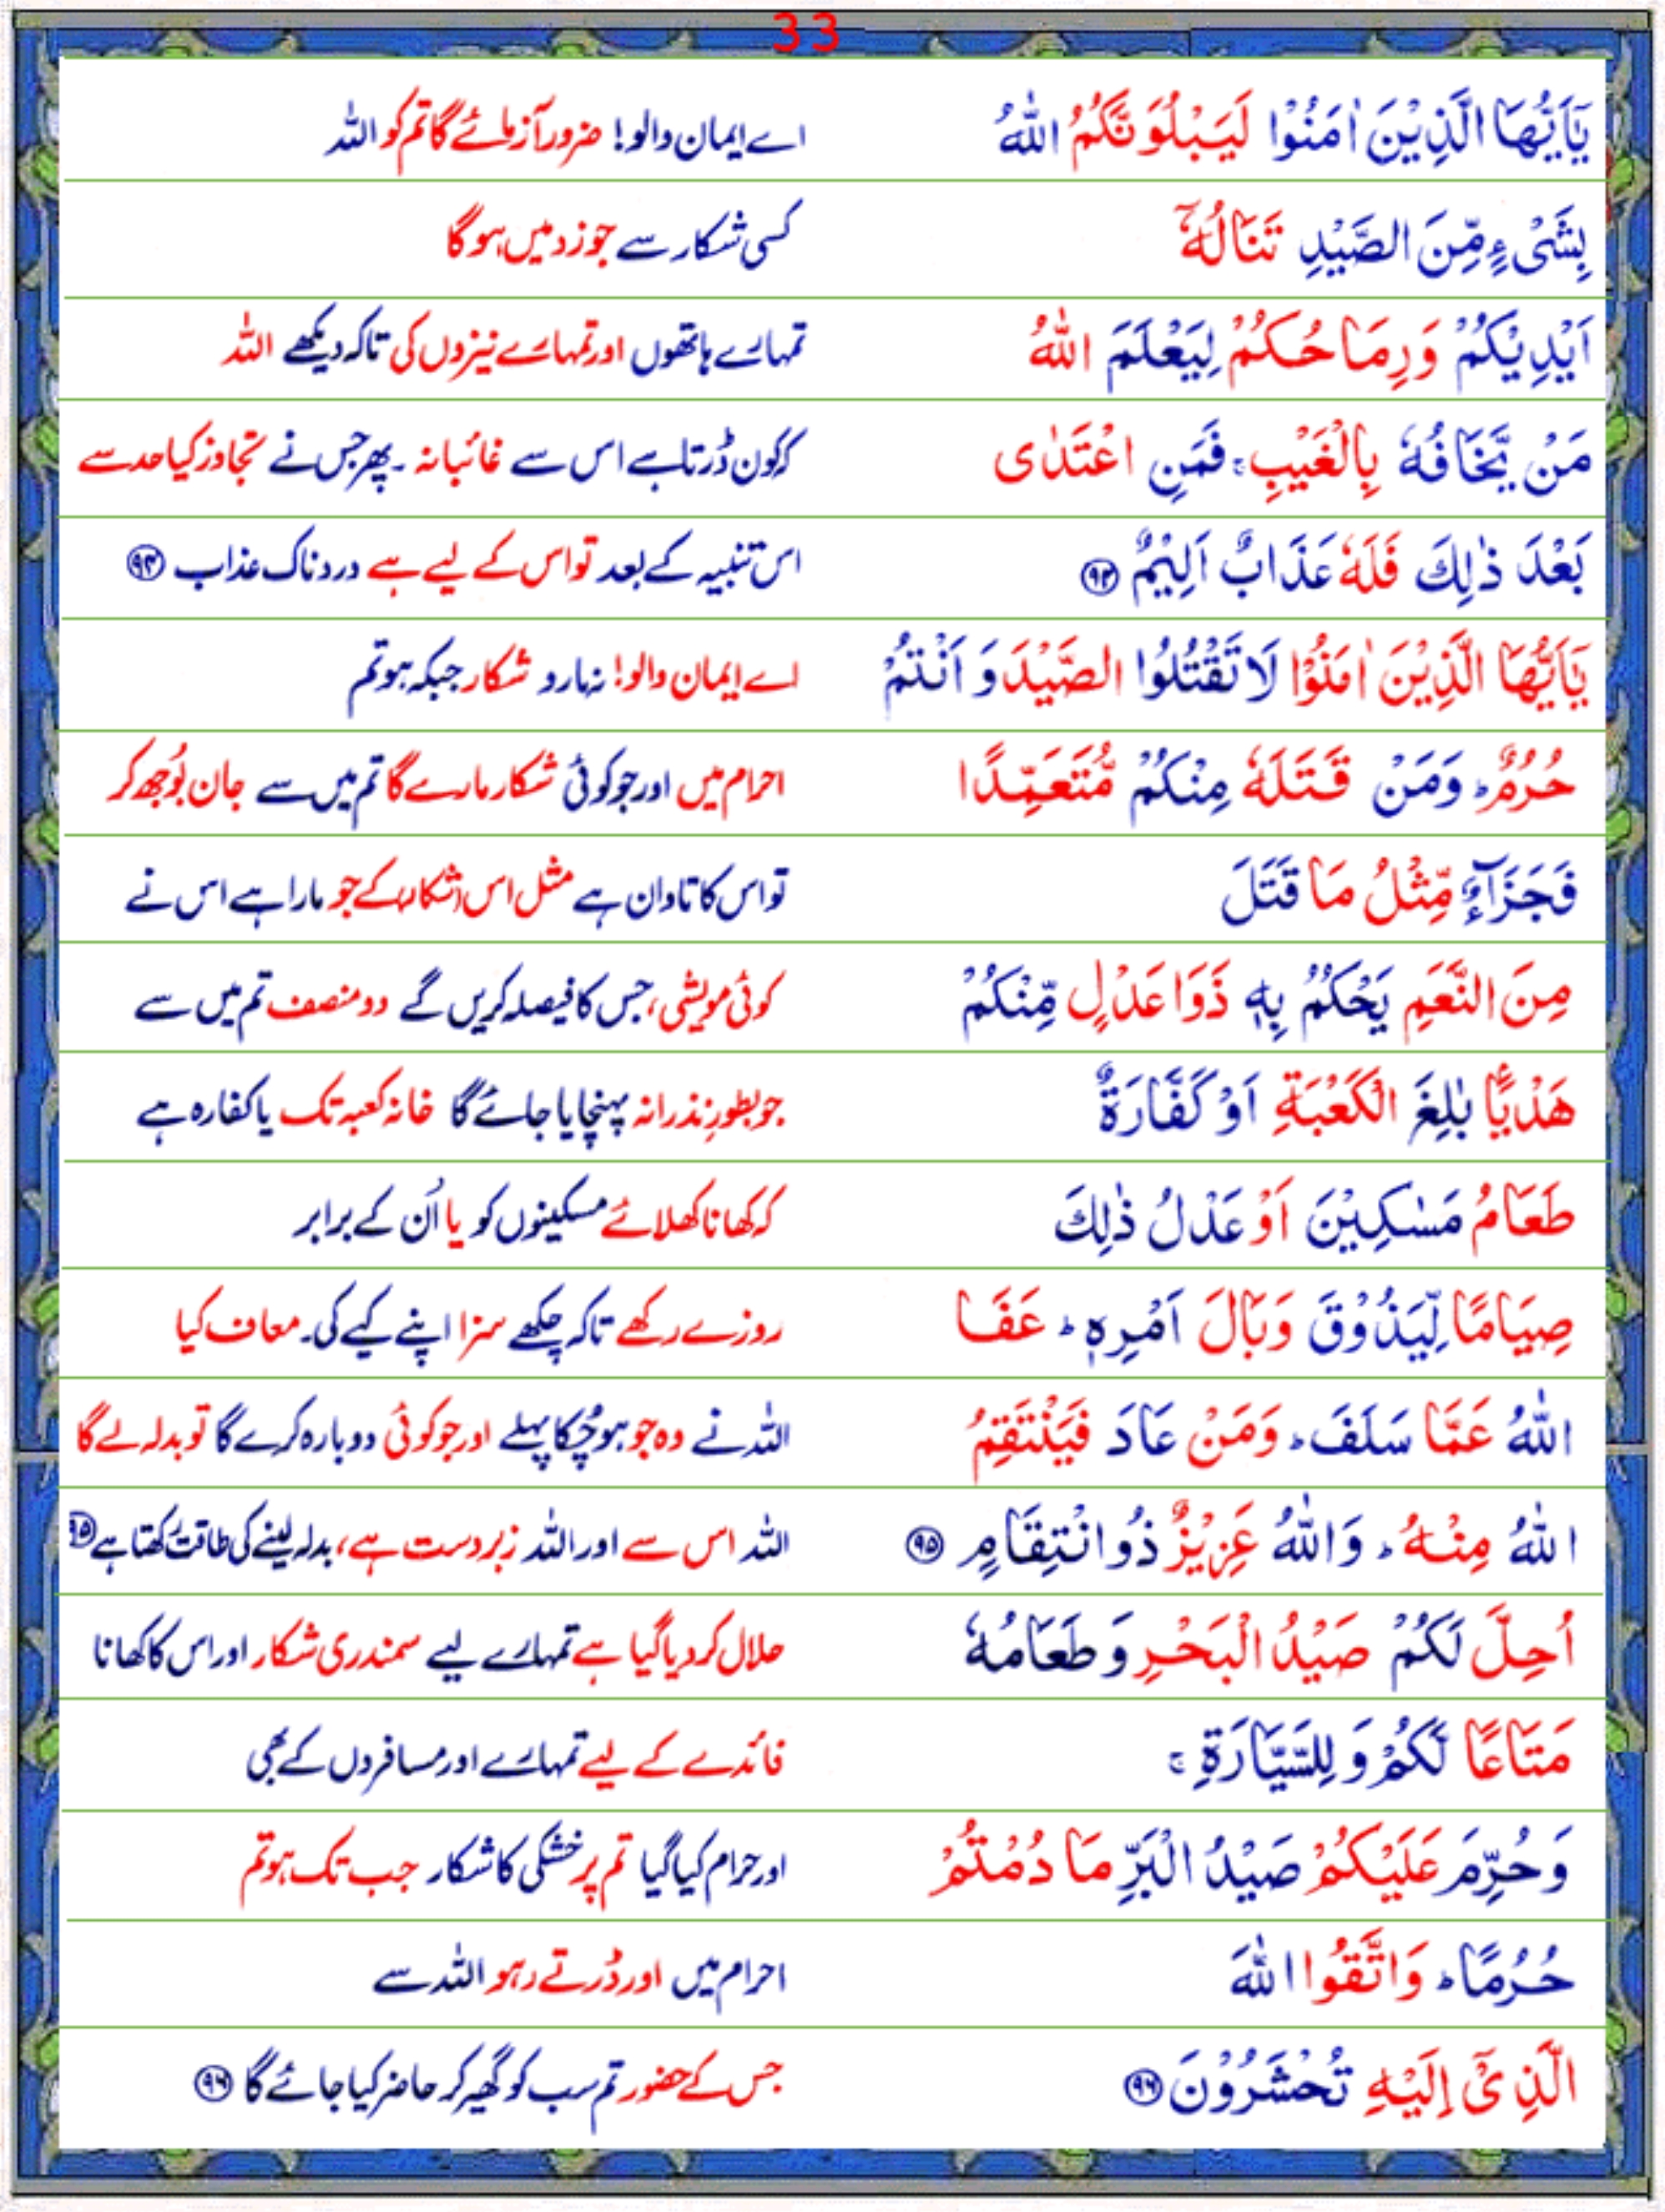 33
يٰۤاَيُّهَا الَّذِيْنَ اٰمَنُوْا لَيَبْلُوَنَّكُمُ اللّٰهُ اے ایمان والو! ضرور آزمائے گا تم کو اللہ
بِشَىْءٍ مِّنَ الصَّيْدِ تَنَالُهٗۤ کسی شکار سے جو زد میں ہوگا
اَيْدِيْكُمْ وَرِمَاحُكُمْ لِيَعْلَمَ اللّٰهُ تمہارے ہاتھوں اور تمہارے نیزوں کی تاکہ دیکھے اللہ
مَنْ يَّخَافُهٗ بِالْغَيْبِ ۚ فَمَنِ اعْتَدٰى کہ کون ڈرتا ہے اس سے غائبانہ ۔ پھر جس نے تجاوز کیا حد سے
بَعْدَ ذٰلِكَ فَلَهٗ عَذَابٌ اَلِيْمٌ ۹۴ اس تنبیہ کے بعد تو اس کے لیے ہے دردناک عذاب ۹۴
يٰۤاَيُّهَا الَّذِيْنَ اٰمَنُوْا لَا تَقْتُلُوا الصَّيْدَ وَ اَنْتُمْ اے ایمان والو! نہ مارو شکار جبکہ ہو تم
حُرُمٌ ؕ وَمَنْ قَتَلَهٗ مِنْكُمْ مُّتَعَمِّدًا احرام میں اور جو کوئی شکار مارے گا تم میں سے جان بُوجھ کر
فَجَزَآءٌ مِّثْلُ مَا قَتَلَ تو اس کا تاوان ہے مثل اس شکار کے جو مارا ہے اس نے
مِنَ النَّعَمِ يَحْكُمُ بِهٖ ذَوَا عَدْلٍ مِّنْكُمْ کوئی مویشی، جس کا فیصلہ کریں گے دو منصف تم میں سے
هَدْيًۢا بٰلِغَ الْكَعْبَةِ اَوْ كَفَّارَةٌ جو بطورِ نذرانہ پہنچایا جائے گا خانہ کعبہ تک یا کفارہ ہے
طَعَامُ مَسٰكِيْنَ اَوْ عَدْلُ ذٰلِكَ کہ کھانا کھلائے مسکینوں کو یا اُن کے برابر
صِيَامًا لِّيَذُوْقَ وَبَالَ اَمْرِهٖ ؕ عَفَا روزے رکھے تاکہ چکھے سزا اپنے کیے کی۔ معاف کیا
اللّٰهُ عَمَّا سَلَفَ ؕ وَمَنْ عَادَ فَيَنْتَقِمُ اللہ نے وہ جو ہوچُکا پہلے اور جو کوئی دوبارہ کرے گا تو بدلہ لے گا
اللّٰهُ مِنْهُ ؕ وَاللّٰهُ عَزِيْزٌ ذُو انْتِقَامٍ ۹۵ اللہ اس سے اور اللہ زبردست ہے، بدلہ لینے کی طاقت رکھتا ہے ۹۵
اُحِلَّ لَكُمْ صَيْدُ الْبَحْرِ وَ طَعَامُهٗ حلال کر دیا گیا ہے تمہارے لیے سمندری شکار اور اس کا کھانا
مَتَاعًا لَّكُمْ وَ لِلسَّيَّارَةِ ۚ فائدے کے لیے تمہارے اور مسافروں کے بھی
وَحُرِّمَ عَلَيْكُمْ صَيْدُ الْبَرِّ مَا دُمْتُمْ اور حرام کیا گیا تم پر خشکی کا شکار جب تک ہو تم
حُرُمًا ؕ وَاتَّقُوا اللّٰهَ احرام میں اور ڈرتے رہو اللہ سے
الَّذِىْۤ اِلَيْهِ تُحْشَرُوْنَ ۹۶ جس کے حضور تم سب کو گھیر کر حاضر کیا جائے گا ۹۶